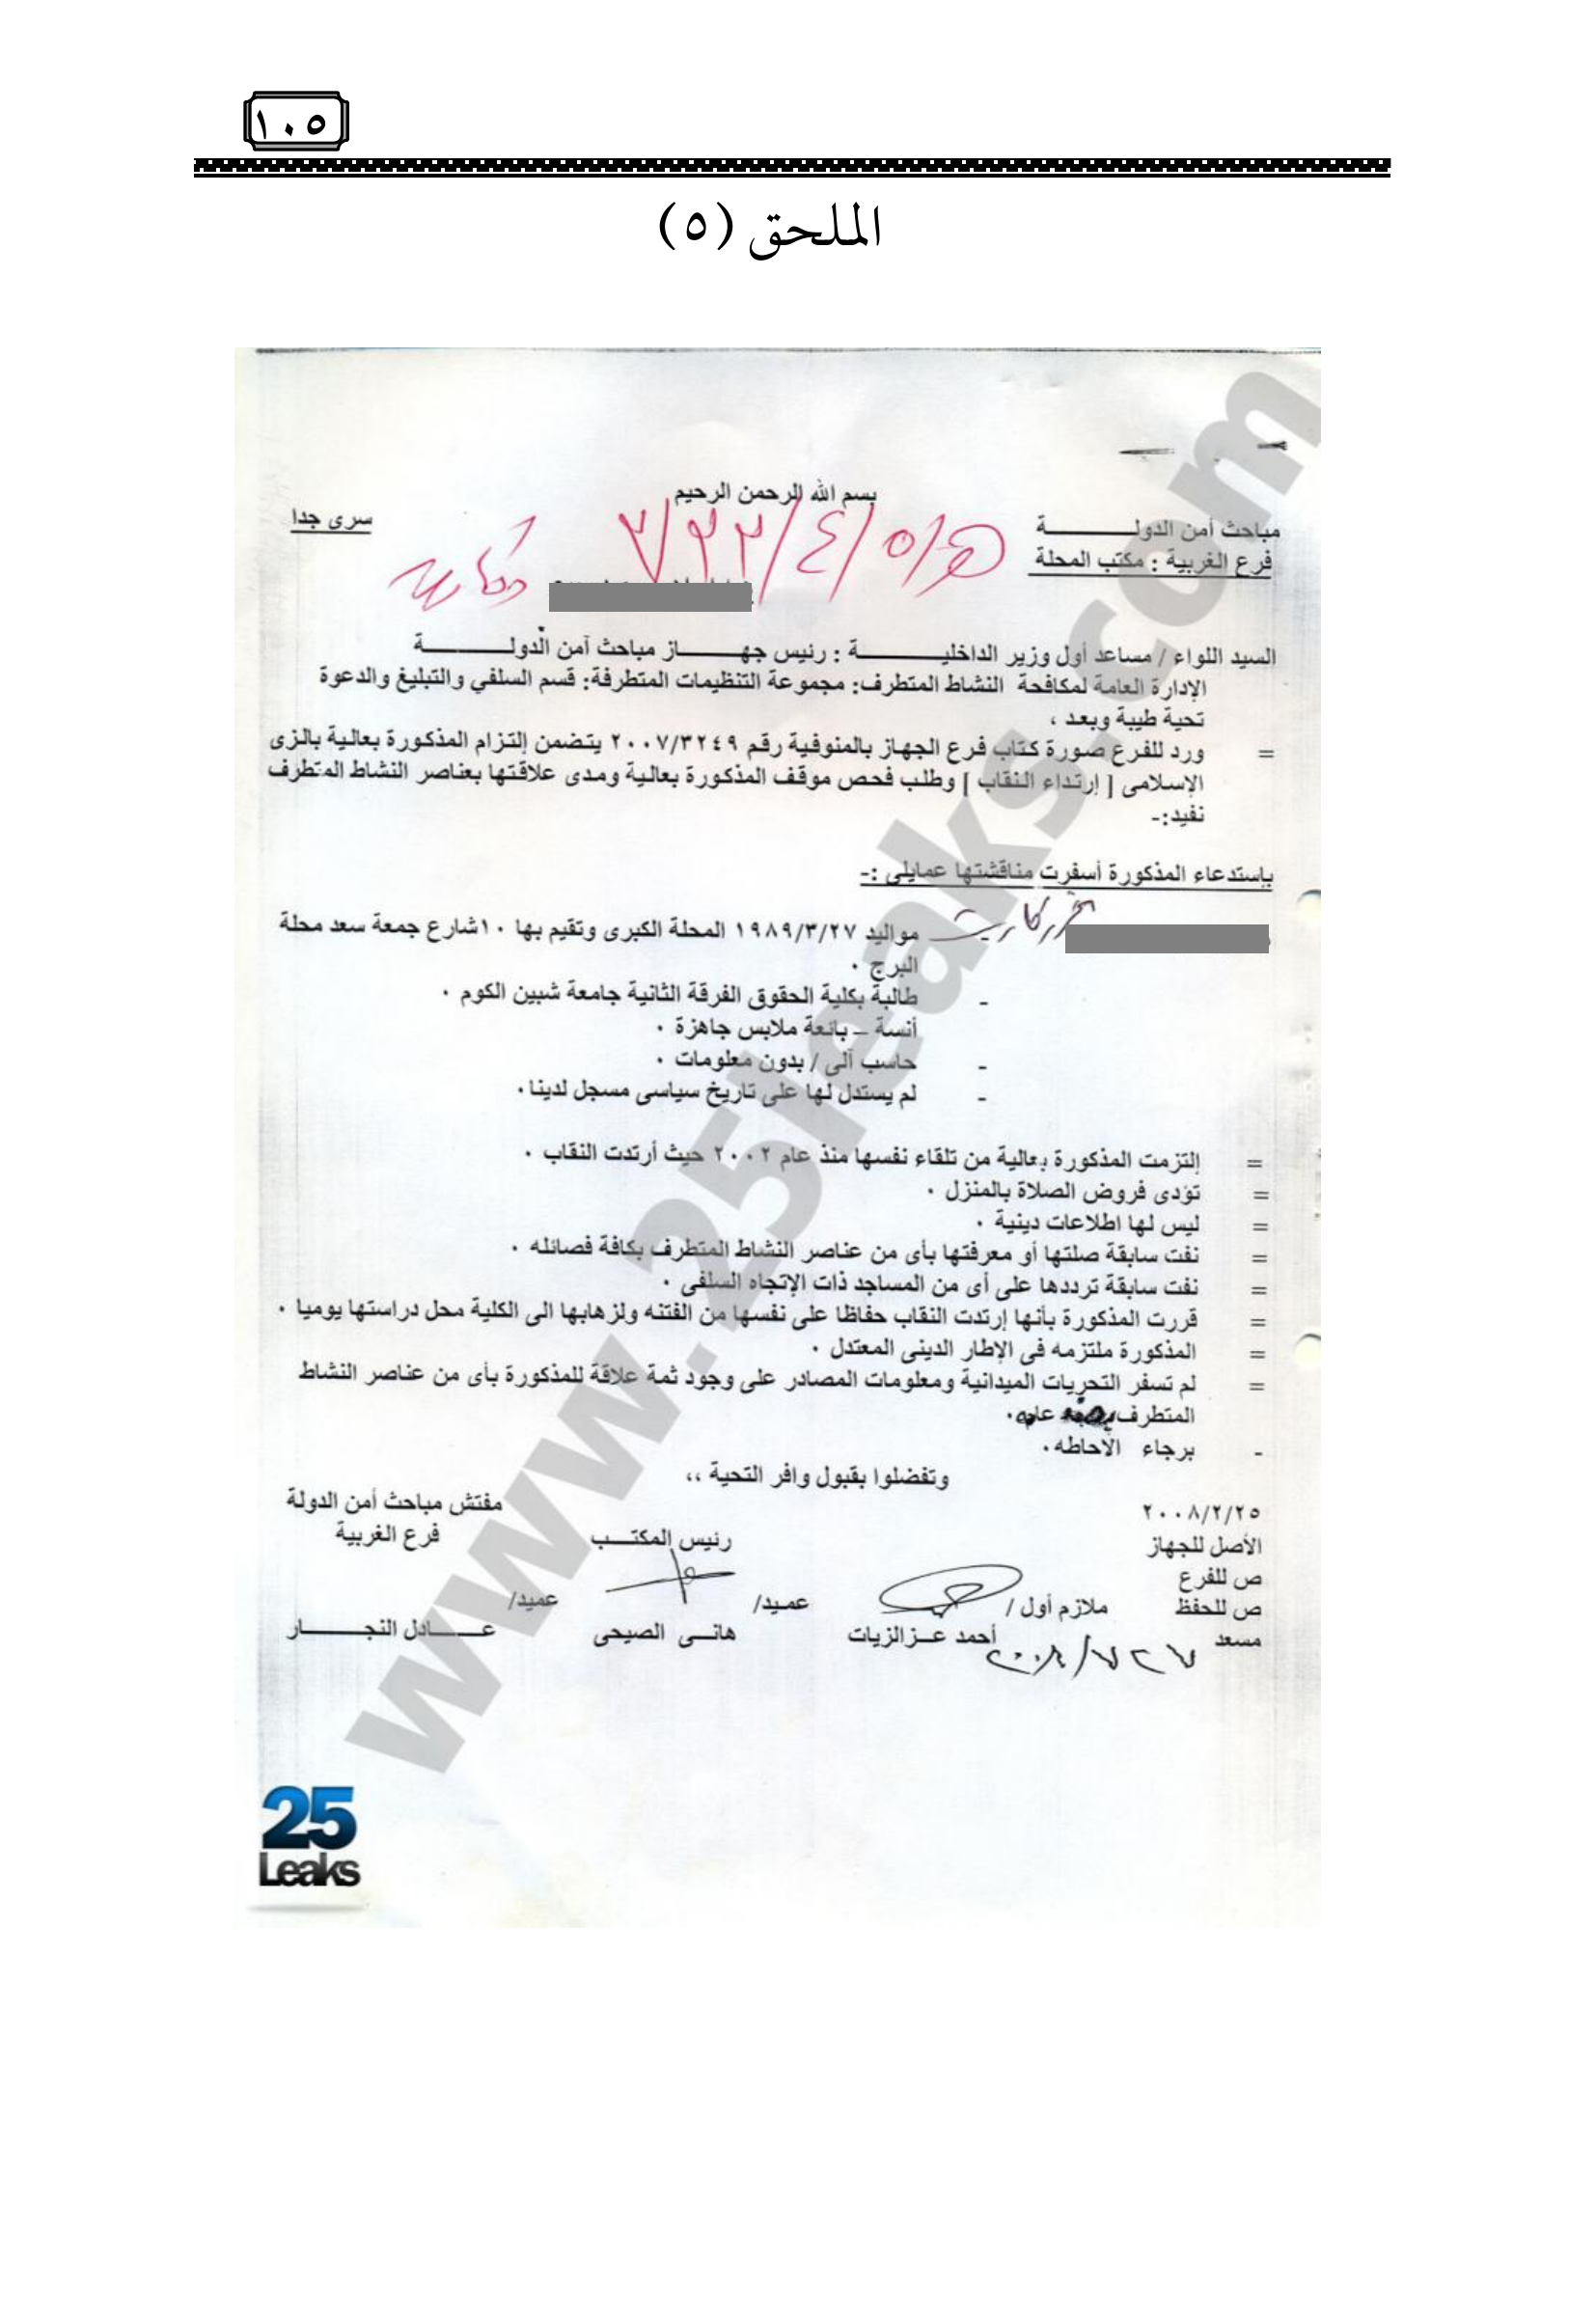 ١٠٥
الملحق (٥)
بسم الله الرحمن الرحيم
مباحث أمن الدولـــــــــة
سرى جدا
فرع الغربية : مكتب المحلة
السيد اللواء / مساعد أول وزير الداخليـــــــــة : رئيس جهـــــــاز مباحث أمن الدولـــــــــة
الإدارة العامة لمكافحة النشاط المتطرف: مجموعة التنظيمات المتطرفة: قسم السلفي والتبليغ والدعوة
تحية طيبة وبعد ،
= ورد للفرع صورة كتاب فرع الجهاز بالمنوفية رقم ٢٠٠٧/٣٢٤٩ يتضمن إلتزام المذكورة بعالية بالزى
الإسلامى [ إرتداء النقاب ] وطلب فحص موقف المذكورة بعالية ومدى علاقتها بعناصر النشاط المتطرف
نفيد:-
بإستدعاء المذكورة أسفرت مناقشتها عمايلى :-
- مواليد ١٩٨٩/٣/٢٧ المحلة الكبرى وتقيم بها ١٠شارع جمعة سعد محلة
البرج ٠
- طالبة بكلية الحقوق الفرقة الثانية جامعة شبين الكوم ٠
أنسة – بائعة ملابس جاهزة ٠
- حاسب آلى / بدون معلومات ٠
- لم يستدل لها على تاريخ سياسى مسجل لدينا٠
= إلتزمت المذكورة بعالية من تلقاء نفسها منذ عام ٢٠٠٢ حيث أرتدت النقاب ٠
= تؤدى فروض الصلاة بالمنزل ٠
= ليس لها اطلاعات دينية ٠
= نفت سابقة صلتها أو معرفتها بأى من عناصر النشاط المتطرف بكافة فصائله ٠
= نفت سابقة ترددها على أى من المساجد ذات الإتجاه السلفى ٠
= قررت المذكورة بأنها إرتدت النقاب حفاظا على نفسها من الفتنه ولزهابها الى الكلية محل دراستها يوميا ٠
= المذكورة ملتزمه فى الإطار الدينى المعتدل ٠
= لم تسفر التحريات الميدانية ومعلومات المصادر على وجود ثمة علاقة للمذكورة بأى من عناصر النشاط
المتطرف
- برجاء الأحاطه٠
وتفضلوا بقبول وافر التحية ،،
٢٠٠٨/٢/٢٥
مفتش مباحث أمن الدولة
الأصل للجهاز
رئيس المكتـــب
فرع الغربية
ص للفرع
ص للحفظ
ملازم أول /
عميد/
عميد/
مسعد
أحمد عــزالزيات
هانـــى الصيحى
عـــــادل النجـــــــار
www.25leaks.com
25
Leaks